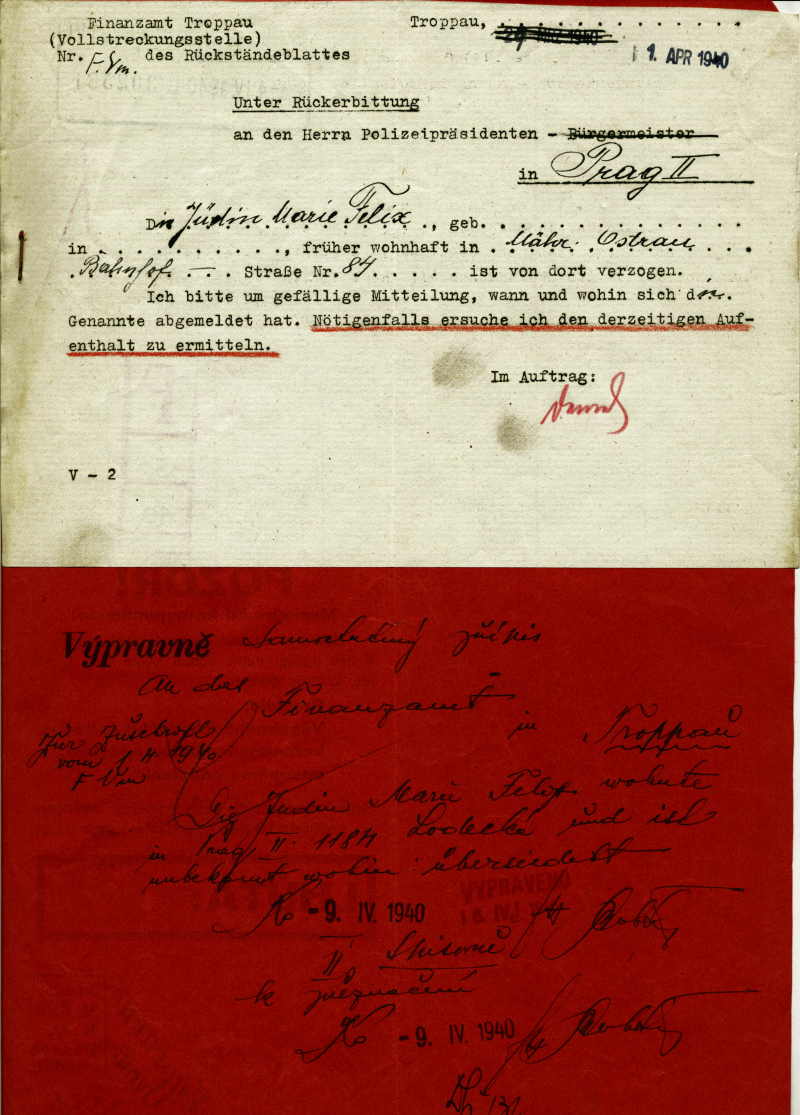 Finanzamt Troppau
(Vollstreckungsstelle)
Nr. F. Vm. des Rückständeblattes
Troppau, . . . . . . . . . . . . .
1940
1. APR 1940
Unter Rückerbittung
an den Herrn Polizeipräsidenten - Bürgermeister
in Prag II
Die Jüdin Marie Felix . ., geb. . . . . . . . . . . . .
in . . . . . . . . . . ., früher wohnhaft in . Mähr. Ostrau . . .
. Bahnhof. - . . Straße Nr. 84. . . . . ist von dort verzogen.
Ich bitte um gefällige Mitteilung, wann und wohin sich die.
Genannte abgemeldet hat. Nötigenfalls ersuche ich den derzeitigen Auf-
enthalt zu ermitteln.
Im Auftrag:
V - 2
POZOR!
Výpravně
An das
Finanzamt
in Troppau
Zur Zuschrift
vom 1 4 1940
F Vm
Die Jüdin Marie Felix wohnte
in Prag II 1184 Lodecká und ist
unbekannt wohin übersiedelt
VYPRAVENO
K - 9. IV. 1940
II
k
K - 9. IV. 1940